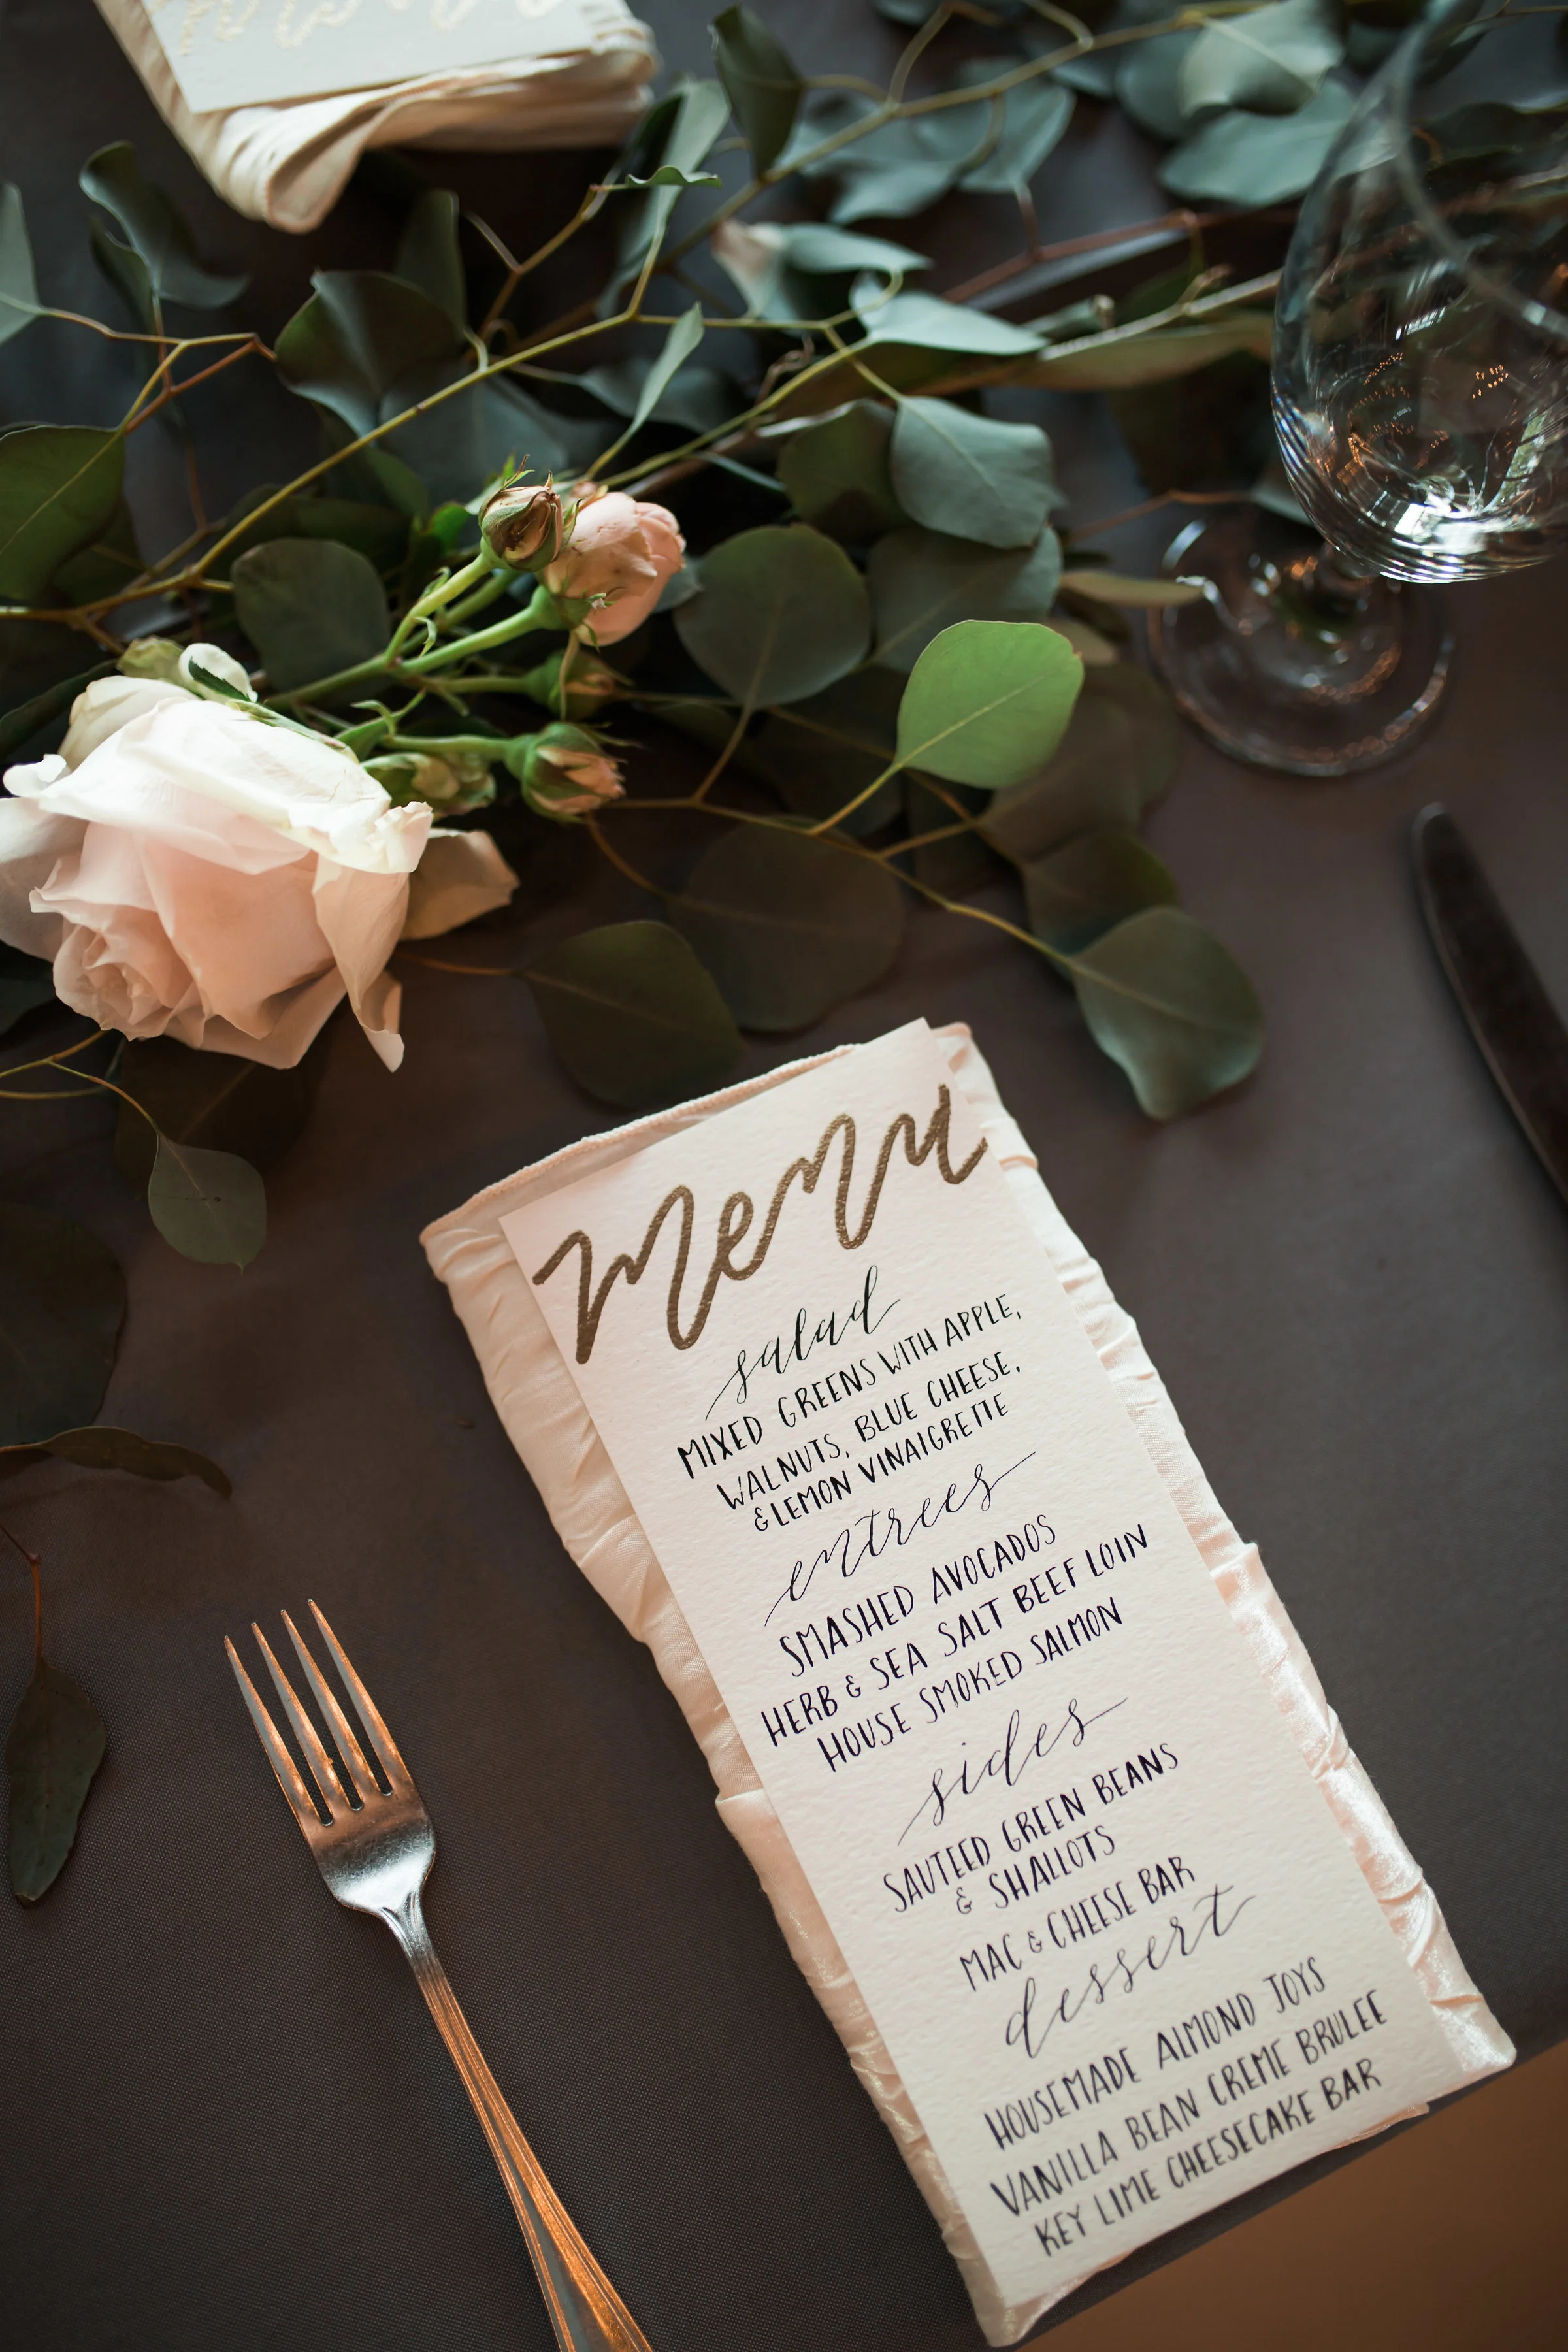 menu
salad
MIXED GREENS WITH APPLE,
WALNUTS, BLUE CHEESE,
& LEMON VINAIGRETTE
entrees
SMASHED AVOCADOS
HERB & SEA SALT BEEF LOIN
HOUSE SMOKED SALMON
sides
SAUTEED GREEN BEANS
& SHALLOTS
MAC & CHEESE BAR
dessert
HOUSEMADE ALMOND JOYS
VANILLA BEAN CREME BRULEE
KEY LIME CHEESECAKE BAR